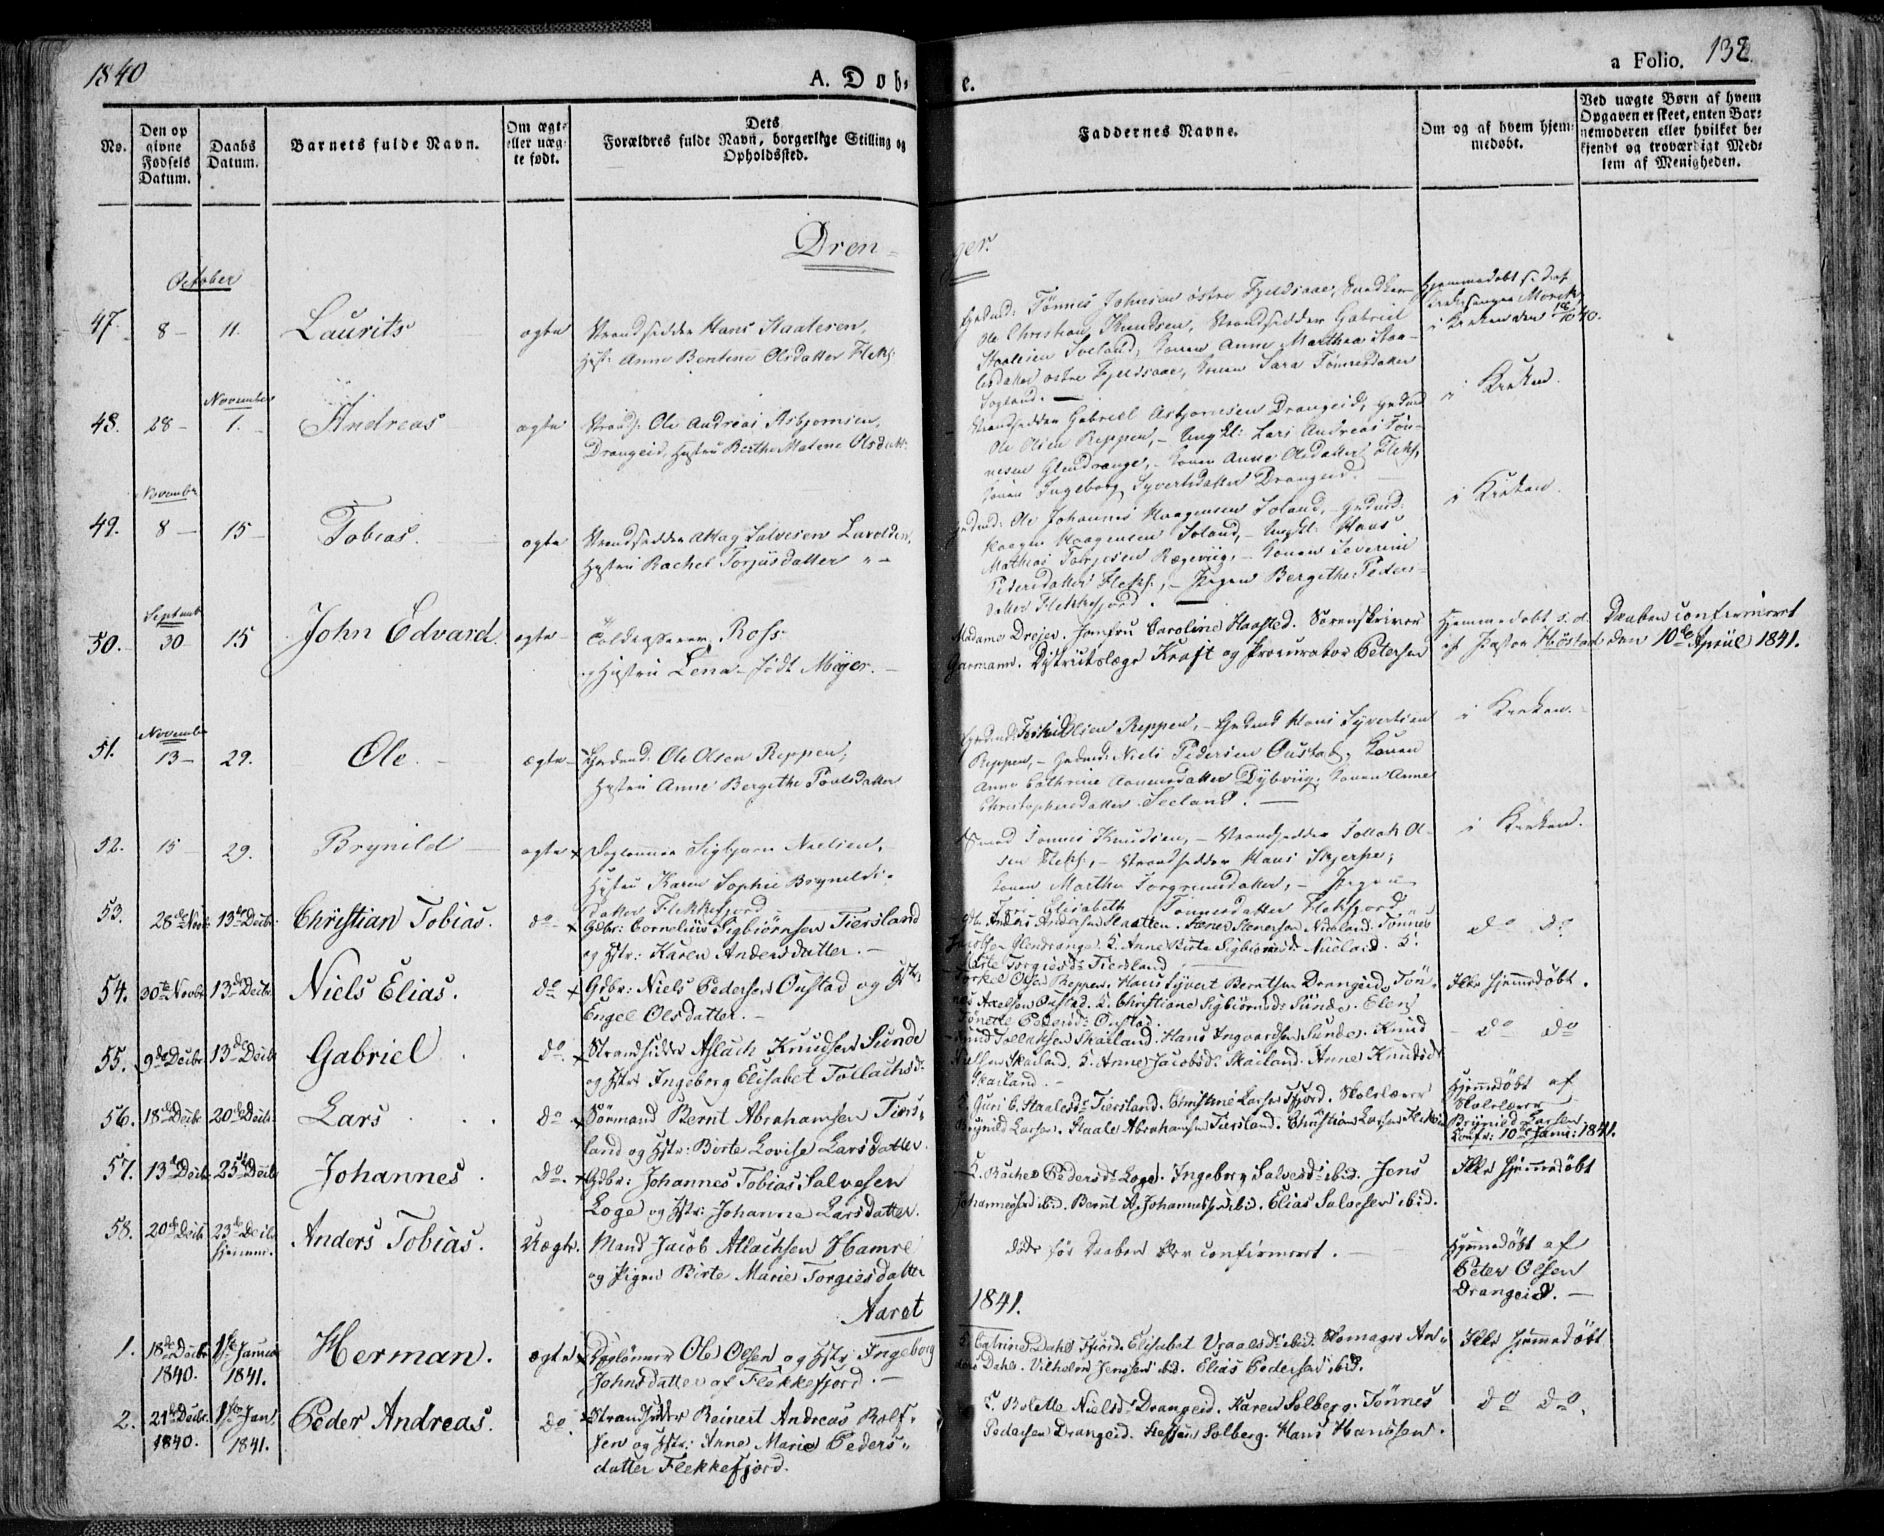 1840
A. Døb-
e.
a Folio. 132.
No.
Den op
givne
Fødsels
Datum.
Daabs
Datum.
Barnets fulde Navn.
Om ægte
eller uæg-
te født.
Dets
Forældres fulde Navn, borgerlige Stilling og
Opholdssted.
Faddernes Navne.
Om og af hvem hjem-
medøbt.
Ved uægte Børn af hvem
Opgaven er skeet, enten Bar-
nemoderen eller hvilket be-
kjendt og troværdigt Med-
lem af Menigheden.
Dren-
ger.
October
47. 8 - 11. Laurits ægte Strandsidder Hans Staalesen,
Hust: Anne Berthine Olsdatter Flekf:
Tønnes Johnsen østre Fjeldsaae, Snedker
Ole Christian Knudsen, Strandsidder Gabriel
Staalesen Soeland, Konen Anne Marthea Staa-
lesdatter østre Fjeldsaae, Konen Sara Tønnesdatter
Hjemmedøbt
Kirkesanger
i Kirken den
November
48. 28 - 1. Andreas ægte Strands: Ole Andreas Asbjørnsen,
Drangeid, Hustru Berthe Malene Olsdatt:
Strandsidder Gabriel Asbjørnsen Drangeid, Grdmd
Ole Olsen Reppen, - Ungkl: Lars Andreas Tøn-
nesen Glendrange, - Konen Anne Olsdatter Flekf,
Konen Ingeborg Syvertsdatter Drangeid. -
i Kirken.
November
49. 8 - 15 - Tobias. ægte Strandsidder Aslag Salvesen Lavolden,
Hustru Rachel Torjusdatter " -
Grdmd: Ole Johannes Haagensen Soland, Grdmd:
Haagen Haagensen Soland, - Ungkl: Hans
Mathias Torjesen Rægeviig, - Konen Severine
Pedersdatter Flekf:, - Pigen Bergithe Peders-
datter Flekkefjord.
i Kirken.
Septemb
50. 30 15 John Edvard ægte - Toldkasserer Ross
og Hustru Lena - født Meyer. -
Madame Drejer. Jomfru Caroline Haasted. Sorenskriver
Garmann. Distriktslæge Kraft og Procurator Petersen
Hjemmedøbt s. d. Daaben confirmeret
af Pastor Høstad den 10de April 1841.
November
51. 13 - 29. Ole. - ægte - Grdmd: Ole Olsen Reppen,
Hustru Anne Bergithe Poulsdatter
Grdmd: Torkild Olsen Reppen, - Grdmd Hans Syvertsen
Reppen, - Grdmd: Niels Pedersen Oustad, Konen
Anne Cathrine Aanensdatter Dybviig, Konen Anne
Christophersdatter Seeland. -
i Kirken. -
52. 15 29. Brynild ægte Dagleonner Sigbjørn Nielsen,
Hustru Karen Sophie Brynilds-
datter Flekkefjord
Smed Tønnes Knudsen, - Strandsidder Tollak Ol-
sen Flekf:, - Strandsidder Hans Skjerpe;
Konen Marthe Torgrimsdatter, - Pigen
Elisabeth Tønnesdatter Flekfjord
i Kirken.
53. 28de Novbr 13de Decbr: Christian Tobias. do - Gdbr: Cornelius Sigbiørnsen Tiersland
og Hstr: Karen Andersdatter. -
Andersen Staatten. Stener Stenersen Nieland. Tønnes
Jacobsen Glendrange. K. Anne Birte Sigbiørnsdr Nieland. K.
Marte Torgiesdr Tiersland
do do
54. 30te Novbr 13de Decbr Niels Elias. do Gdbr: Niels Pedersen Oustad og Hstr,
Engel Olsdatter. -
Torkel Olsen Reppen. Hans Syvert Berntsen Drangeid. Tøn-
nes Axelsen Oustad. K. Christiane Sigbiørnsdr Sunde. Elen
Tønette Pedersdr Oustad.
Ikke hjemmedøbt.
55. 9de Decbr 13de Decbr Gabriel. do. Strandsidder Aslach Knudsen Sunde
og Hstr: Ingeborg Elisabet Tollachsdr
Knud Tollaksen Skailand. Hans Ingvardsen Sunde. Knud
Nielsen Skailand. K. Anne Jacobsdr Skailand. Anne Knudsdr
Skailand. -
do do
56. 18de Decbr 20de Decbr. Lars. do Sørmand Bernt Abrahamsen Tiers-
land og Hstr: Birte Lovise Larsdatter.
K. Guri C. Staalesdr Tiersland. Christine Larsen Fjord. Skolelærer
Brynild Larsen. Staale Abrahamsen Tiersland. Christian Larsen Flekkef
Hjemmedøbt af
Skolelærer
Brynild Larsen
Confr: 10de Janu: 1841.
57. 13de Decbr 25de Decbr Johannes. do. Gdbr: Johannes Tobias Salvesen
Loge og Hstr: Johanne Larsdatter.
K. Rachel Pedersdr Loge. Ingeborg Salvesdr ibid. Jens
Johannesen ibid. Bernt A. Johannesen ibid. Elias Salvesen ibid.
Ikke hjemmedøbt
58. 20de Decbr 23de Decbr
hjemme. Anders Tobias. Uægte. Mand Jacob Atlachsen Hamre
og Pigen Birte Marie Torgiesdatter
døde før Daaben blev confirmeret. -
Hjemmedøbt af
Peter Olsen
Drangeid. -
Aaret
1841.
1. 18de Decbr
1840. 1ste Januar
1841. Herman. ægte Daglønner Ole Olsen og Hstr; Ingeborg
Johnsdatter af Flekkefjord. -
K. Catrine Dahl Fjord. Elisabet Vraalsdr ibid. Skomager An-
ders Dahl. Vilhelm Jenssen ibid. Elias Pedersen ibid.
Ikke hjemmedøbt
2. 21de Decbr
1840. 1ste Jan
1841. Peder Andreas. do. Strandsidder Reinert Andreas Rolf-
sen og Hstr: Anne Marie Peders-
datter Flekkefjord.
K. Bolette Nielsdr Drangeid. Karen Solberg. Tønnes
Pedersen Drangeid. Steffen Solberg. Hans Hanssen.
do do.